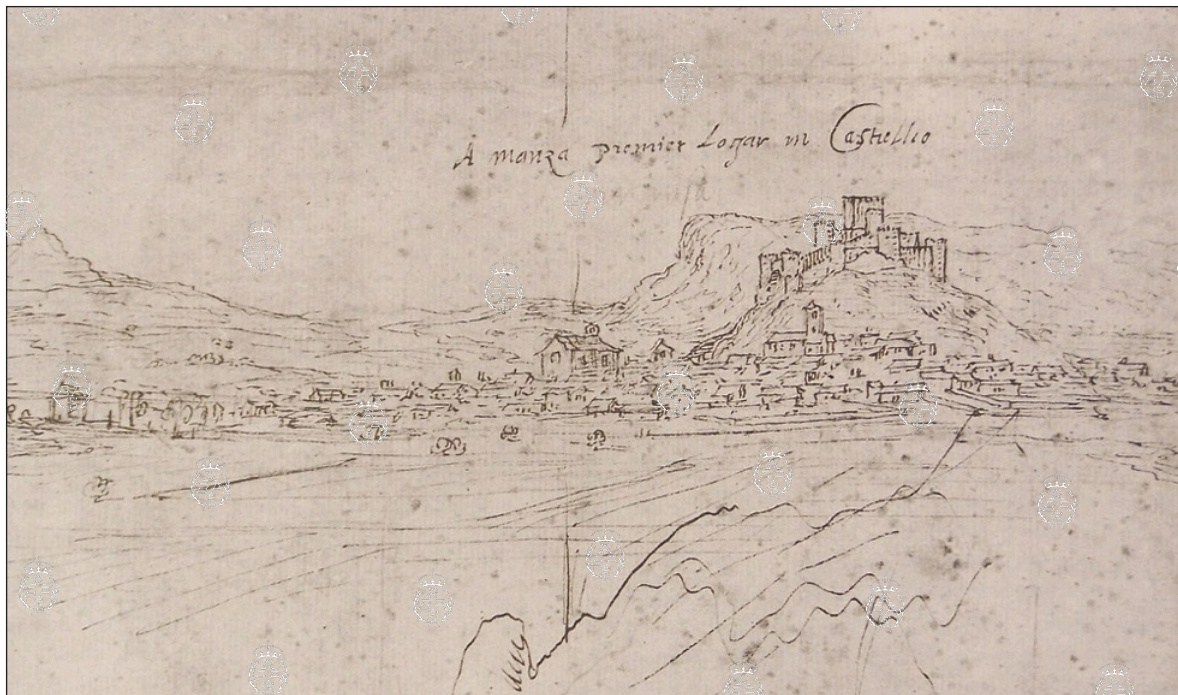 A manza premier Logar in Castellio